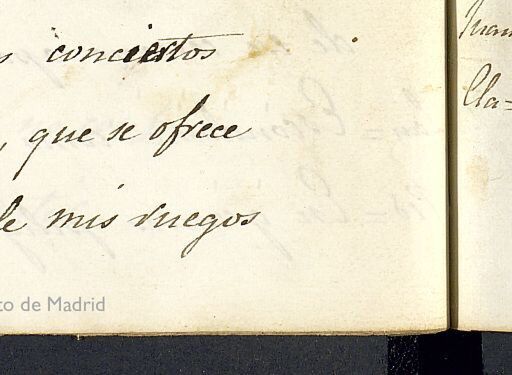 s conciertos
, que se ofrece
de mis ruegos
to de Madrid
Cla=